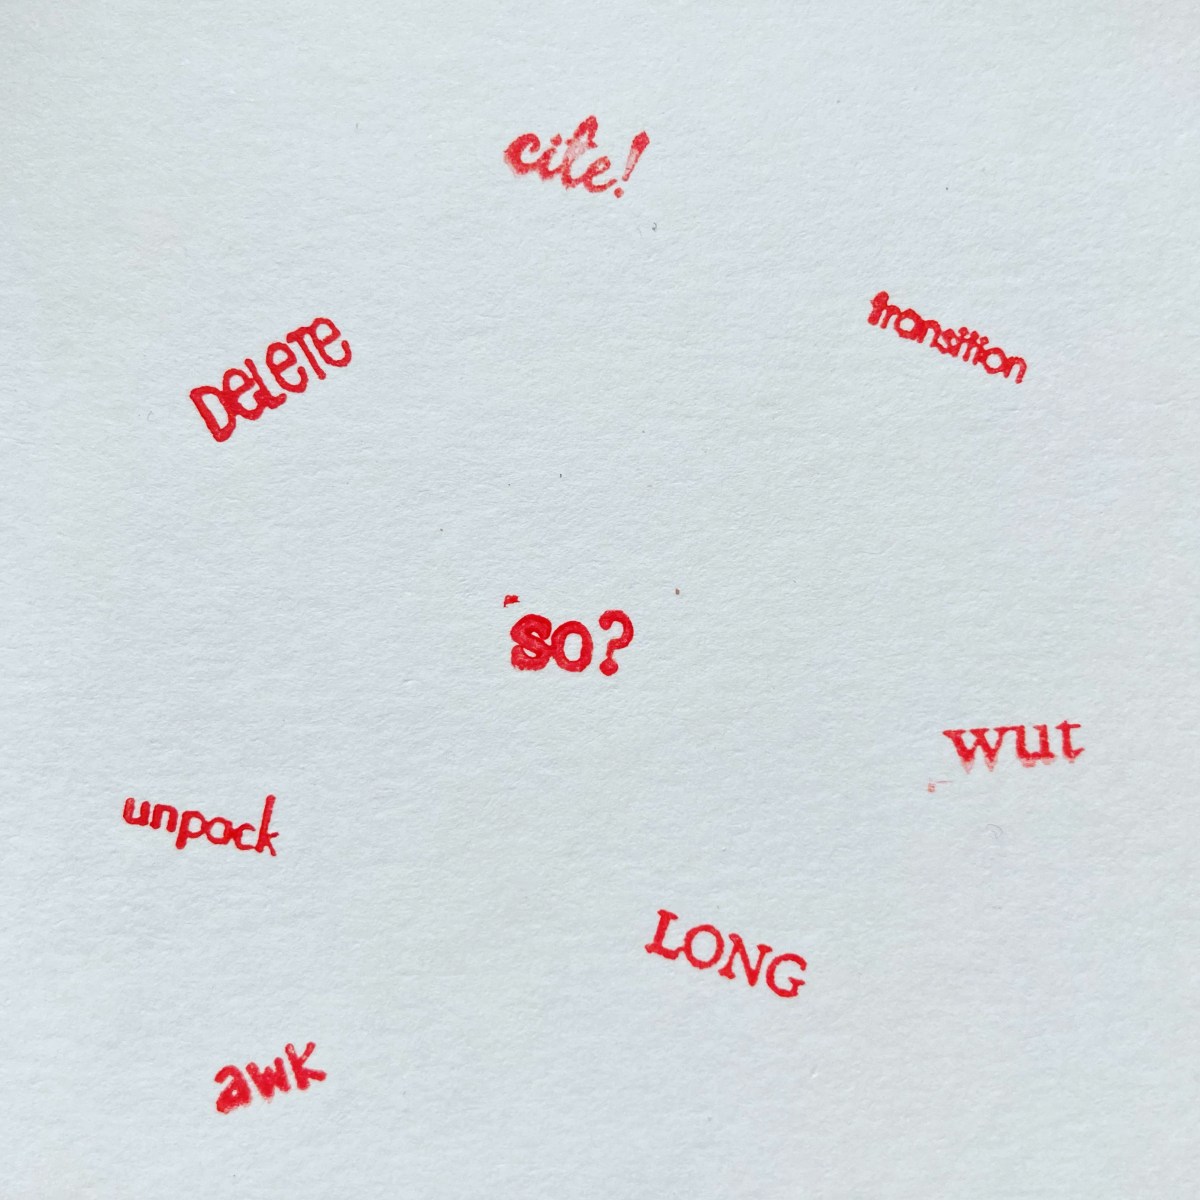 cite!
transition
DELETE
so?
wut
unpack
LONG
awk